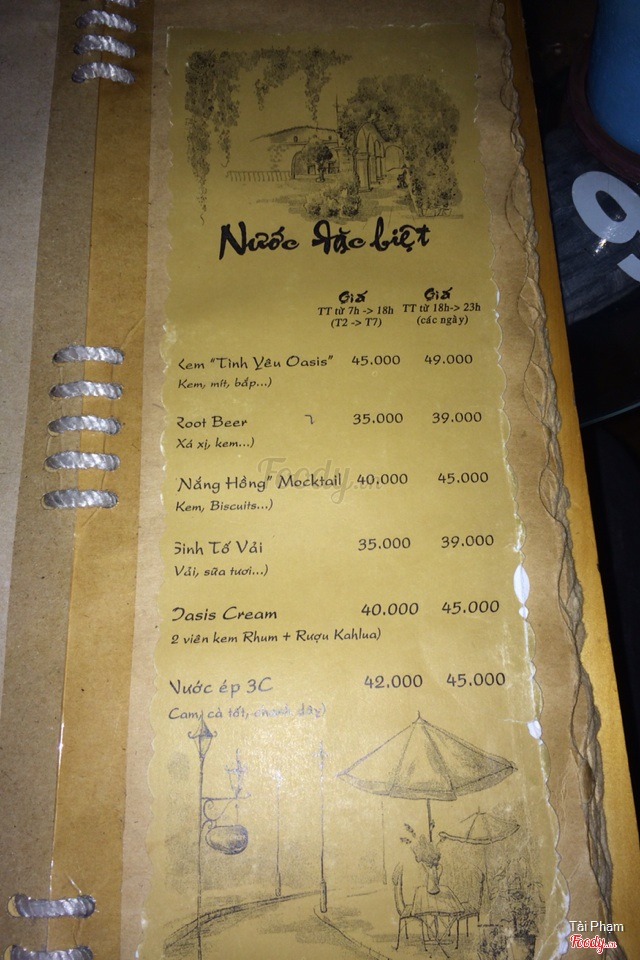 Nước đặc biệt
Giá Giá
TT từ 7h -> 18h TT từ 18h-> 23h
(T2 -> T7) (các ngày)
Kem "Tình Yêu Oasis" 45.000 49.000
Kem, mít, bắp...)
Root Beer 35.000 39.000
Xá xị, kem...)
Nắng Hồng" Mocktail 40.000 45.000
Kem, Biscuits...)
Sinh Tố Vải 35.000 39.000
Vải, sữa tươi...)
Oasis Cream 40.000 45.000
2 viên kem Rhum + Rượu Kahlua)
Nước ép 3C 42.000 45.000
Cam, cà rốt, chanh dây)
Foody.vn
9
Tài Phạm
Foody.vn